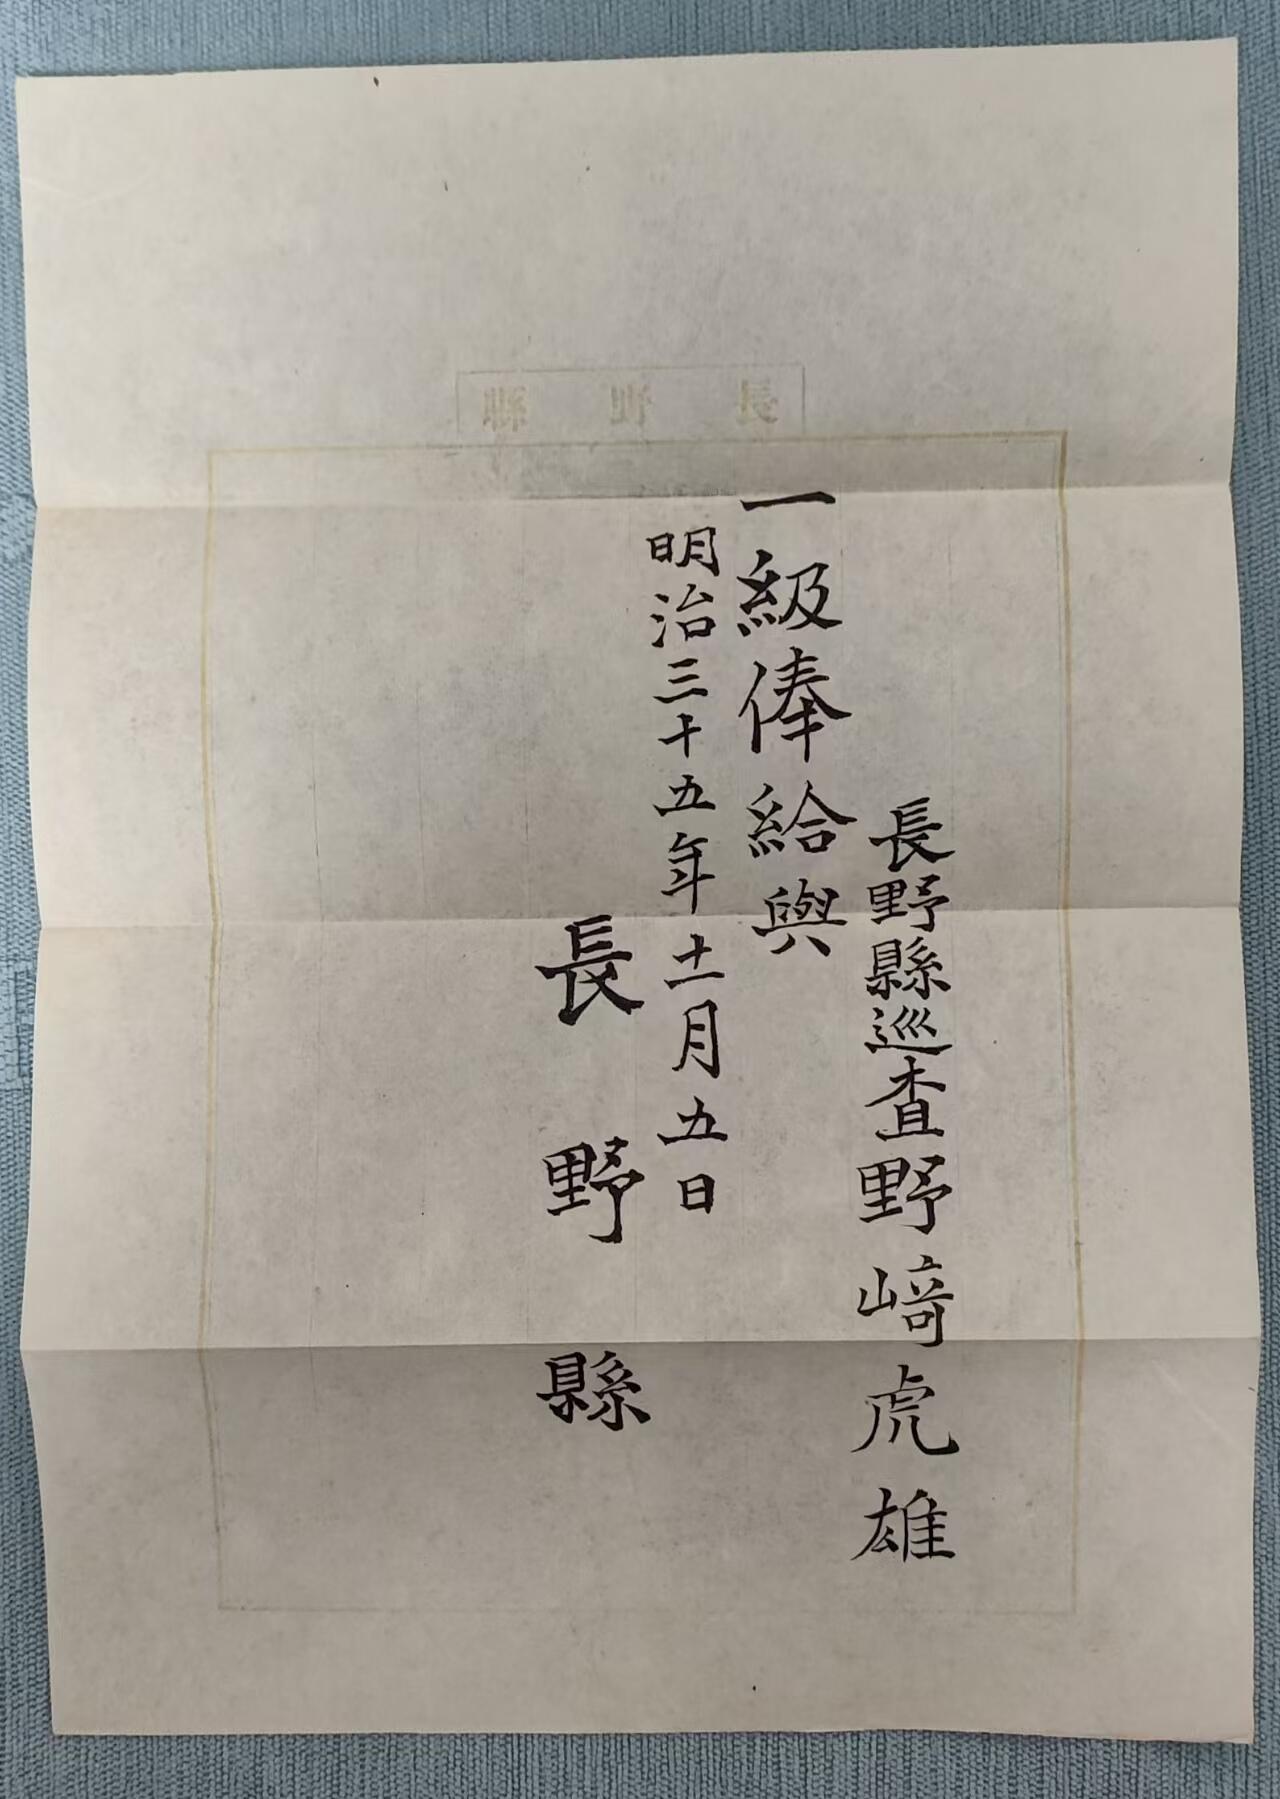 長野縣
長野縣巡査野﨑虎雄
一級俸給與
明治三十五年十一月五日
長野縣